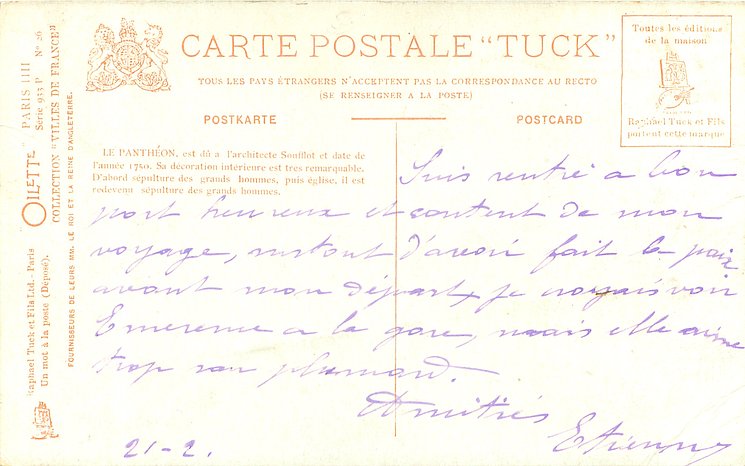 CARTE POSTALE "TUCK"
TOUS LES PAYS ÉTRANGERS N'ACCEPTENT PAS LA CORRESPONDANCE AU RECTO
(SE RENSEIGNER A LA POSTE)
POSTKARTE
POSTCARD
Toutes les éditions
de la maison
Raphaël Tuck et Fils
portent cette marque
LE PANTHÉON, est dû a l'architecte Soufflot et date de
l'année 1760. Sa décoration intérieure est très remarquable.
D'abord sépulture des grands hommes, puis église, il est
redevenu sépulture des grands hommes.
Suis rentré a bon
port heureux et content de mon
voyage, surtout d'avoir fait la paix
avant mon départ, je croyais voir
a la gare, mais elle aime
trop son plumard.
Amitiés
Etienne
21-2.
Raphael Tuck et Fils Ltd.- Paris
Un mot à la poste (Déposé).
"OILETTE" PARIS IIII
Série 953 P Nº 26
COLLECTION "VILLES DE FRANCE"
FOURNISSEURS DE LEURS MM. LE ROI ET LA REINE D'ANGLETERRE.